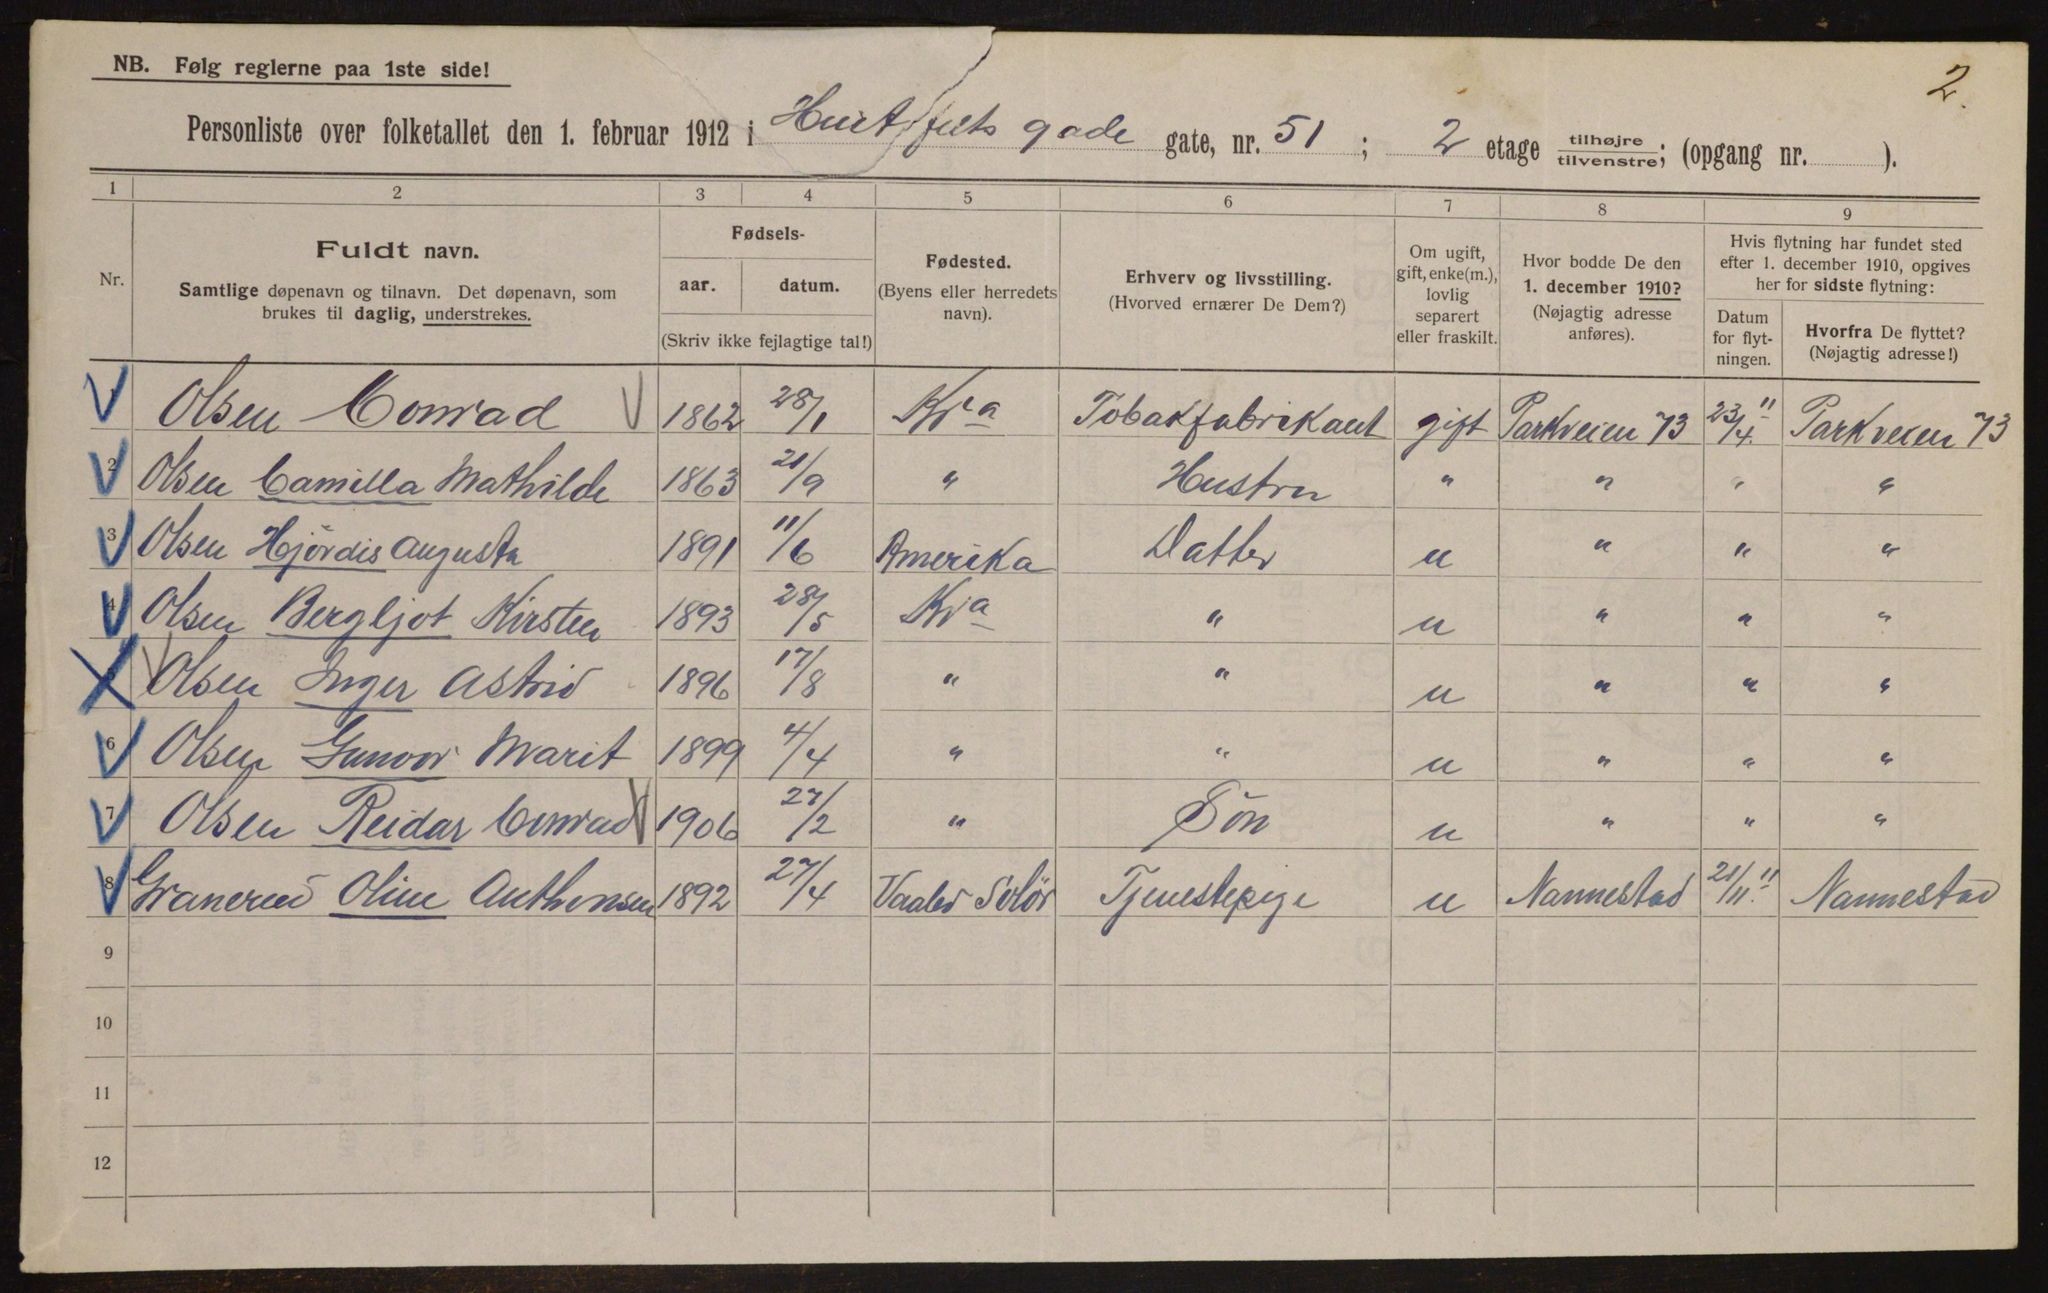 2.
NB. Følg reglerne paa 1ste side!
Personliste over folketallet den 1. februar 1912 i Huitfets gade gate, nr. 51 ; 2 etage tilhøjre / tilvenstre; (opgang nr. ).
1 2 3 4 5 6 7 8 9
Nr.
Fuldt navn.
Samtlige døpenavn og tilnavn. Det døpenavn, som
brukes til daglig, understrekes.
Fødsels-
aar. datum.
(Skriv ikke fejlagtige tal!)
Fødested.
(Byens eller herredets
navn).
Erhverv og livsstilling.
(Hvorved ernærer De Dem?)
Om ugift,
gift, enke(m.),
lovlig
separert
eller fraskilt.
Hvor bodde De den
1. december 1910?
(Nøjagtig adresse
anføres).
Hvis flytning har fundet sted
efter 1. december 1910, opgives
her for sidste flytning:
Datum
for flyt-
ningen.
Hvorfra De flyttet?
(Nøjagtig adresse!)
Olsen Conrad 1862 28/1 Kra Tobakfabrikant gift Parkveien 73 23/4 11 Parkveien 73
2 Olsen Camilla Mathilde 1863 21/9 " Hustru " " " "
3 Olsen Hjördis Augusta 1891 11/6 Amerika Datter u " " "
4 Olsen Bergljot Kirsten 1893 28/5 Kra " u " " "
Olsen Inger Astrid 1896 17/8 " " u " " "
6 Olsen Gunvor Marit 1899 4/4 " " u " " "
7 Olsen Reidar Conrad 1906 27/2 " Sön u " " "
8 Granerud Oline Anthonsen 1892 27/4 Vaaler Solör Tjenestepige u Nannestad 21/11 11 Nannestad
9
10
11
12